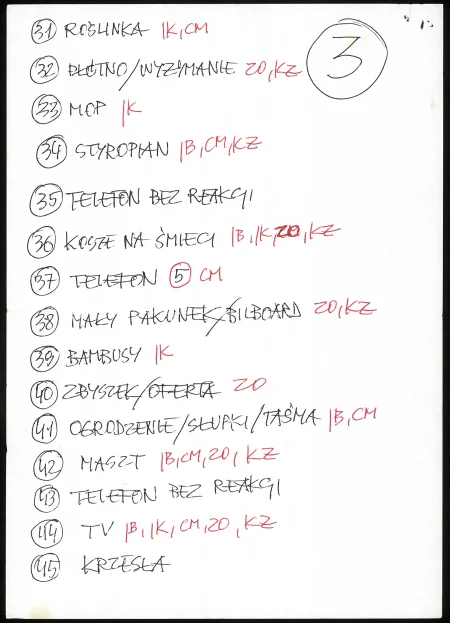 3
31 ROŚLINKA IK, CM
32 PŁÓTNO/WYŻYMANIE ZO, KZ
33 MOP IK
34 STYROPIAN IB, CM, KZ
35 TELEFON BEZ REAKCJI
36 KOSZE NA ŚMIECI IB, IK, ZO, KZ
37 TELEFON 5 CM
38 MAŁY PAKUNEK/BILBOARD ZO, KZ
39 BAMBUSY IK
40 ZBYSZEK/OFERTA ZO
41 OGRODZENIE/SŁUPKI/TAŚMA IB, CM
42 MASZT IB, CM, ZO, KZ
43 TELEFON BEZ REAKCJI
44 TV IB, IK, CM, ZO, KZ
45 KRZESŁA